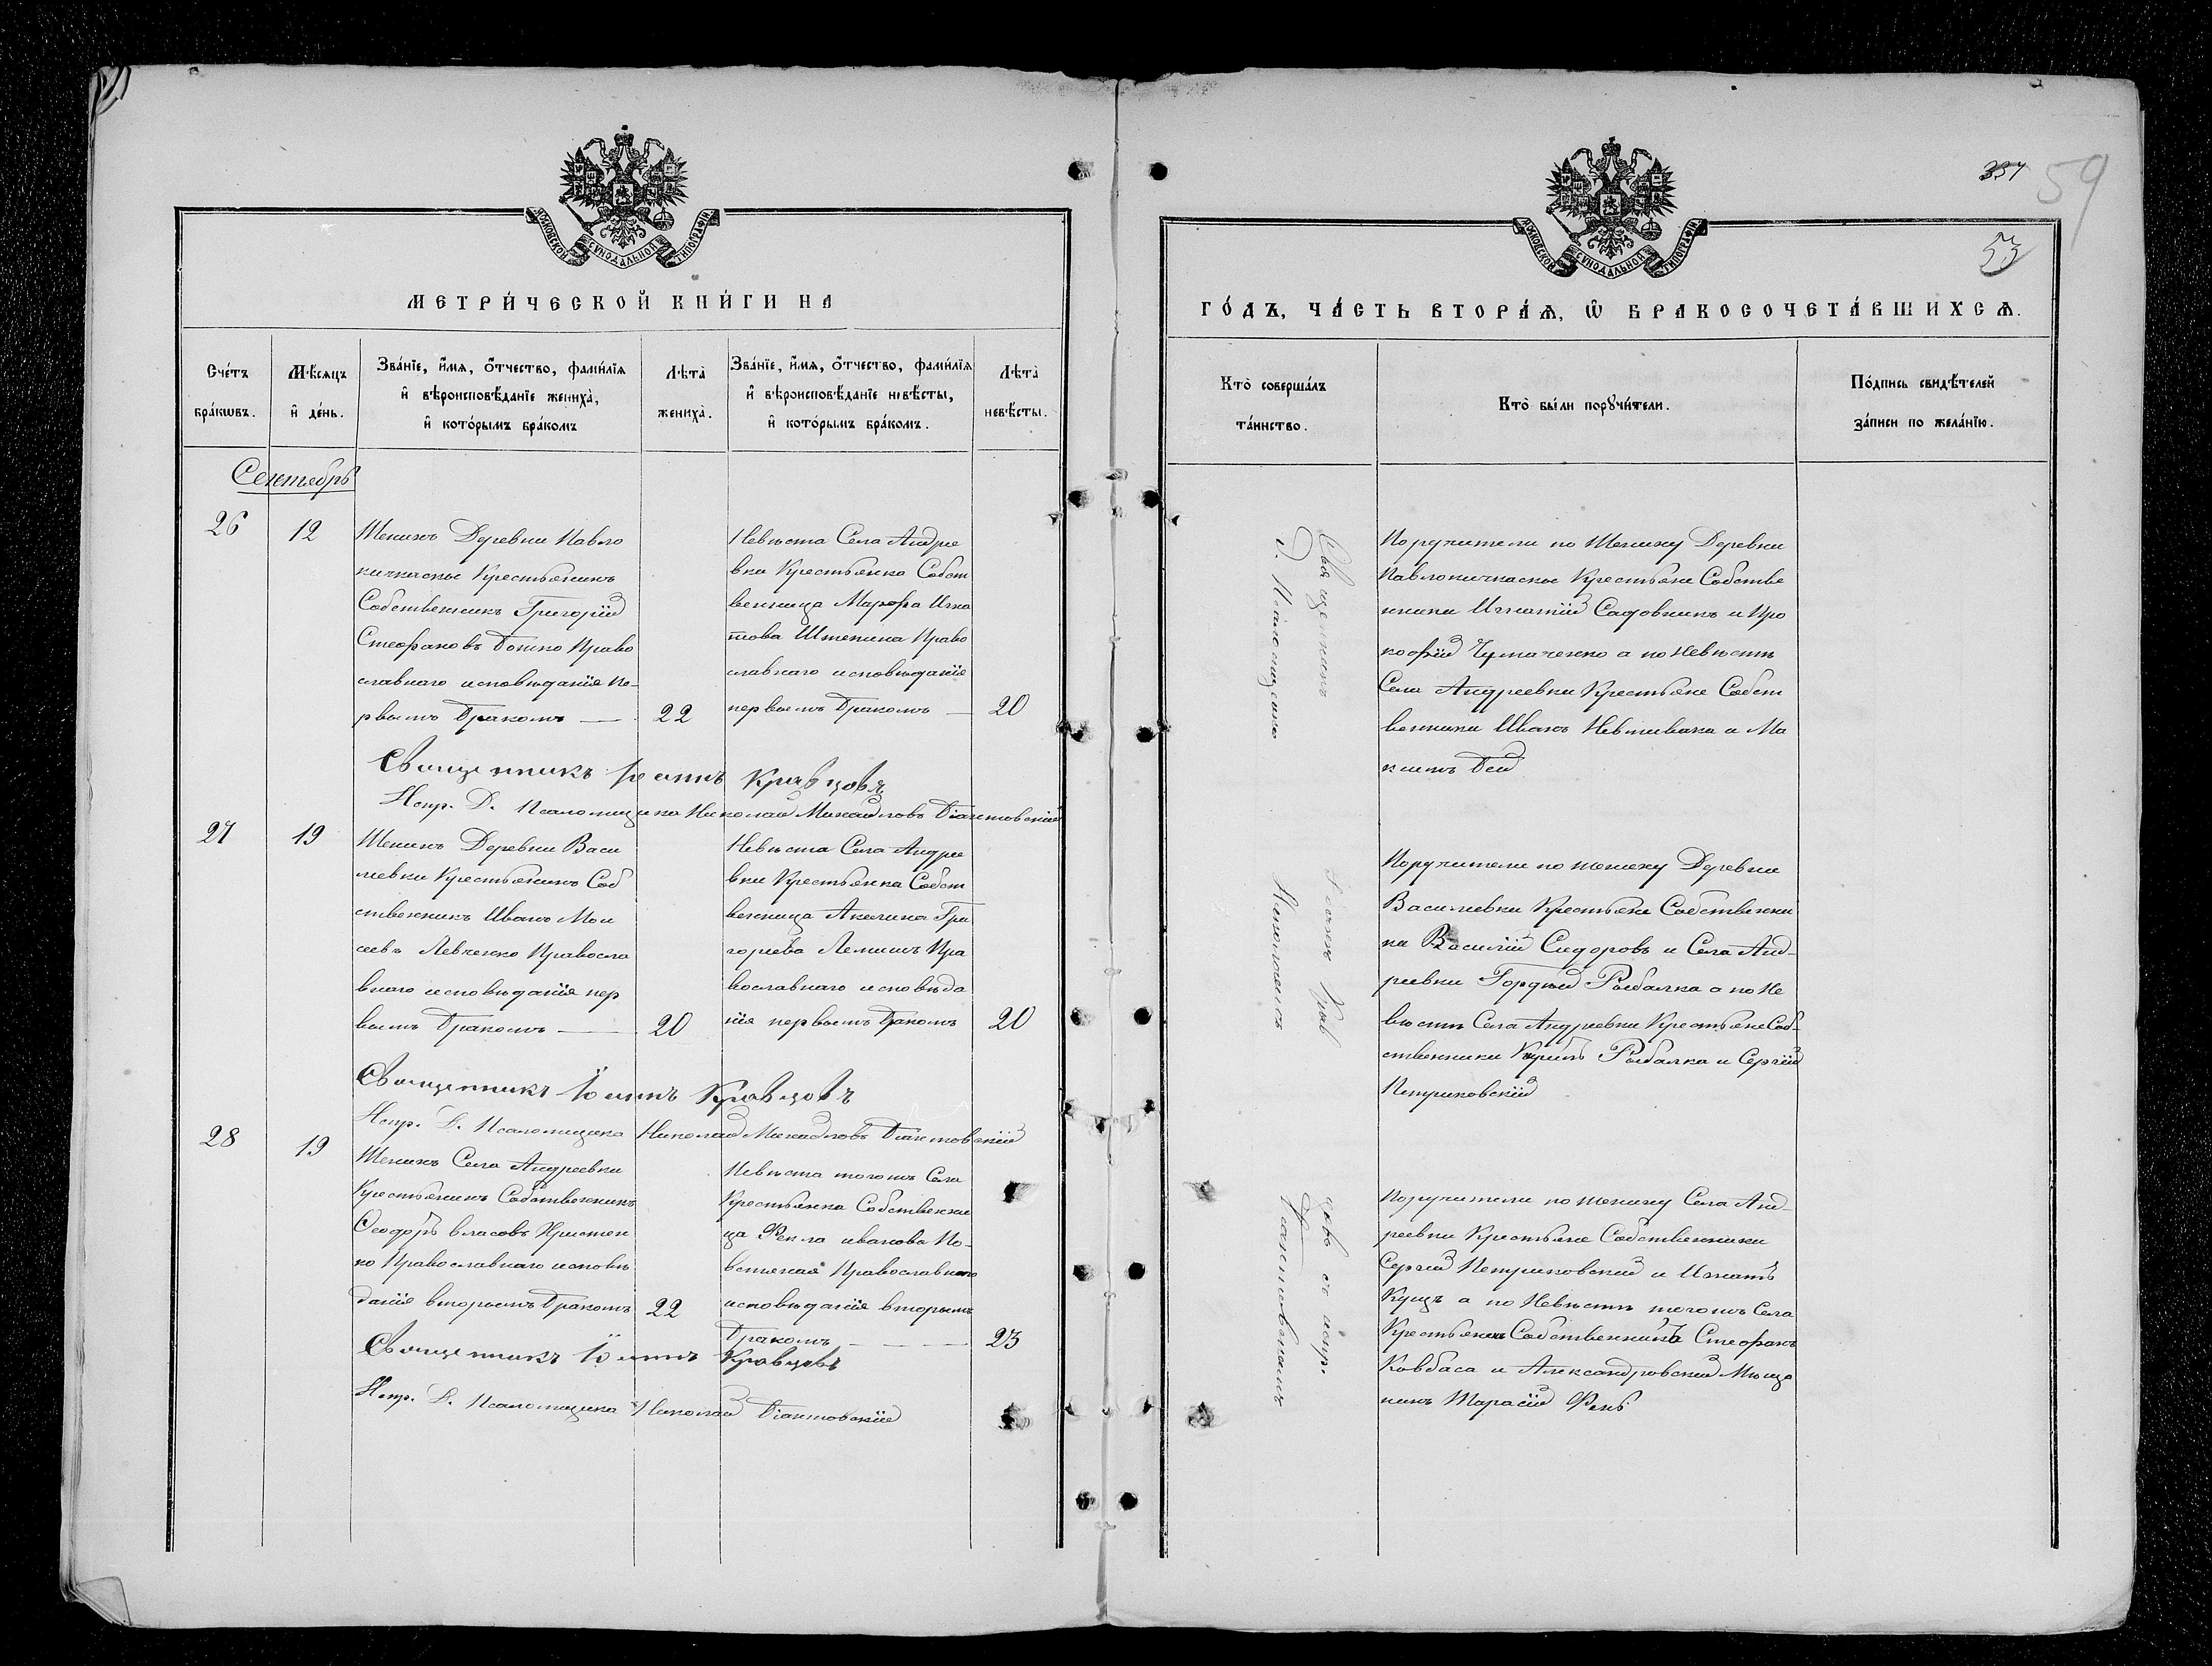 МОСКОВСКОЙ СУНОДАЛЬНОЙ ТИПОГРАФІИ
МЕТРИ́ЧЕСКОЙ КНИ́ГИ НА
Сче́тъ бра́кѡвъ.
Мѣ́сяцъ и҆ де́нь.
Зва́нїе, и҆́мѧ, ѻ҆́тчество, фами́лїѧ и҆ вѣ́роисповѣ́данїе жениха̀, и҆ кото́рымъ бра́комъ
Лѣ́та̀ жениха̀.
Зва́нїе, и҆́мѧ, ѻ҆́тчество, фами́лїѧ и҆ вѣ́роисповѣ́данїе невѣ́сты, и҆ кото́рымъ бра́комъ.
Лѣ́та̀ невѣ́сты.
Сентябрь
26
12
Женихъ Деревни Павло
кичкаскъ Крестьянинъ
Собственникъ Григорій
Стефановъ Бошко Право
славнаго исповѣданія пе-
рвымъ бракомъ —
22
Невѣста Села Андре
вки Крестьянка Собст
венница Марфа Игна
това Право
славнаго исповѣданія
первымъ бракомъ —
20
Священникъ Іоаннъ Кравцовъ
Испр. Д. Псаломщика Николай Михаиловъ Діантовскій
27
19
Женихъ Деревни Васи
левки Крестьянинъ Соб
ственникъ Иванъ Мои
сеевъ Левченко Правосла
внаго исповѣданія пер
вымъ бракомъ —
20
Невѣста Села Андрее
вки Крестьянка Собст
венница Акилина Гри
горіева Лемишъ Пра
вославнаго исповѣда
нія первымъ бракомъ
20
Священникъ Іоаннъ Кравцовъ
Испр. Д. Псаломщика Николай Михаиловъ Діантовскій
28
19
Женихъ Села Андреевки
Крестьянинъ Собственникъ
Феодоръ Власовъ Христен
ко Православнаго исповѣ
данія вторымъ бракомъ
22
Невѣста тогожъ Села
Крестьянка Собственни
ца Фекла иванова
Православнаго
исповѣданія вторымъ
бракомъ —
23
Священникъ Іоаннъ Кравцовъ
Испр. Д. Псаломщика Николай Діантовскій
МОСКОВСКОЙ СУНОДАЛЬНОЙ ТИПОГРАФІИ
354
59
53
ГО́ДЪ, ЧА́СТЬ ВТОРА́Ѧ, Ѡ҆ БРАКОСОЧЕТА́ВШИХСѦ.
Кто̀ соверша́лъ та́инство.
Кто̀ бы́ли порꙋчи́тели.
По́дпись свидѣ́телей за́писи по жела́нїю.
Священникъ Іоаннъ Кравцовъ со испр.
Д. Псаломщика Николаемъ Діантовскимъ
Поручители по Жениху Деревни
Павлокичкаскъ Крестьяне Собстве
нники Игнатій Садовникъ и Про
кофій Чумаченко а по Невѣстѣ
Села Андреевки Крестьяне Собст
венники Иванъ Невтивана и Ма
ксимъ Бей
Поручители по жениху Деревни
Василевки Крестьяне Собственни
ки Василій Сидоровъ и Села Анд-
реевки Гордѣй Рыбалка а по Не
вѣстѣ Села Андреевки Крестьяне Соб-
ственники Рыбалка и Сергій
Петриковскій
Поручители по жениху Села Анд-
реевки Крестьяне Собственники
Сергій Петриковскій и Игнатъ
Куцъ а по Невѣстѣ тогожъ Села
Крестьянинъ Собственникъ Стефанъ
Ковбаса и Александровскій Мѣща
нинъ Тарасій